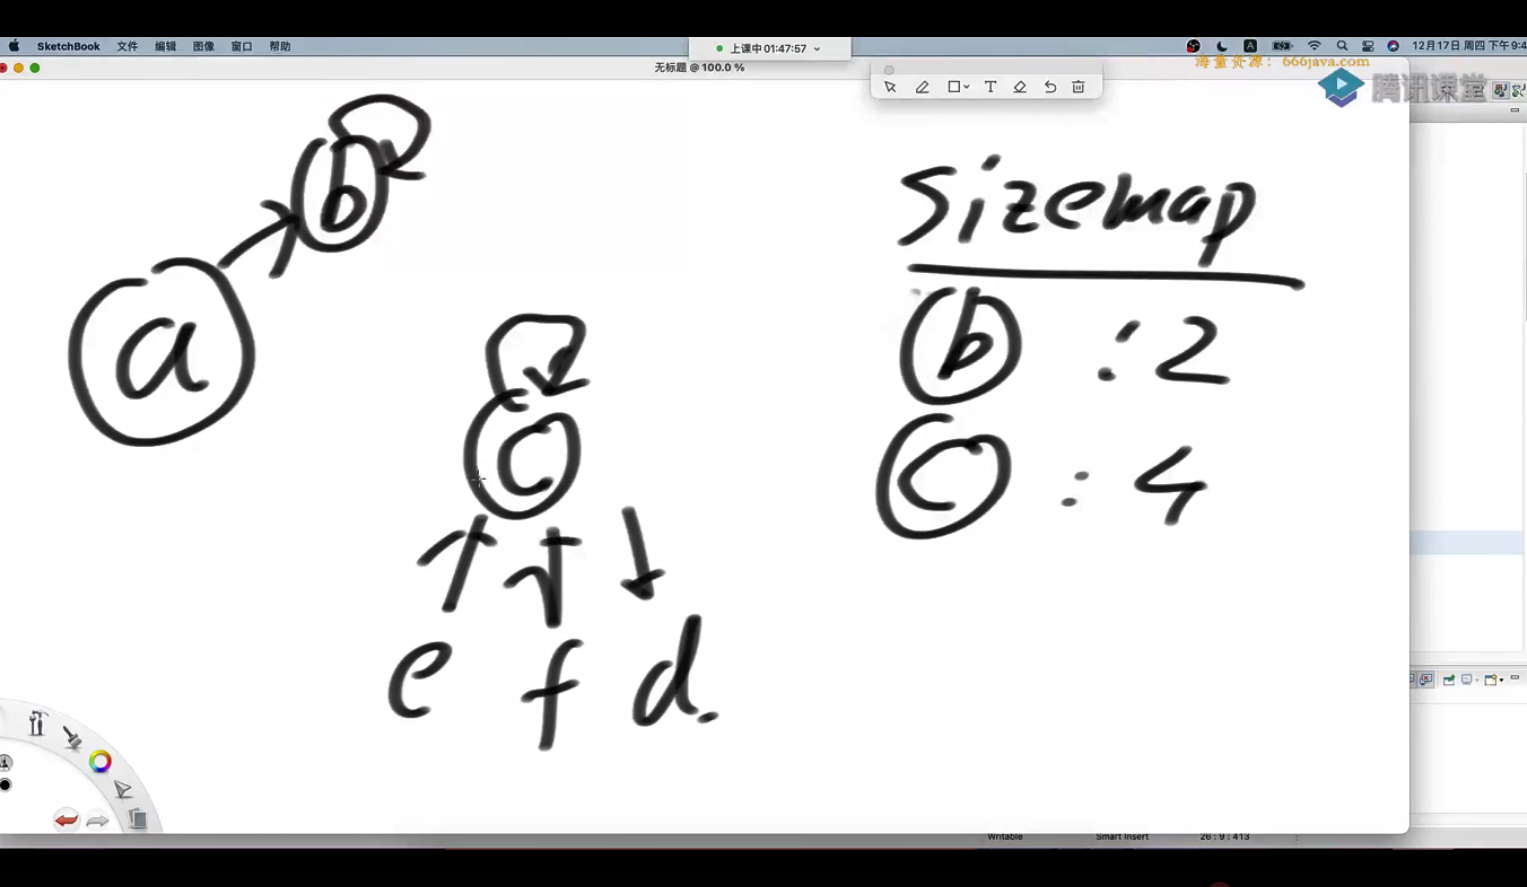 SketchBook 文件 编辑 图像 窗口 帮助
上课中 01:47:57
12月17日 周四 下午9:4
无标题 @ 100.0 %
海量资源：666java.com
腾讯课堂
T
sizemap
b
b : 2
a
c
c : 4
e f d.
Writable Smart Insert 26:9:413